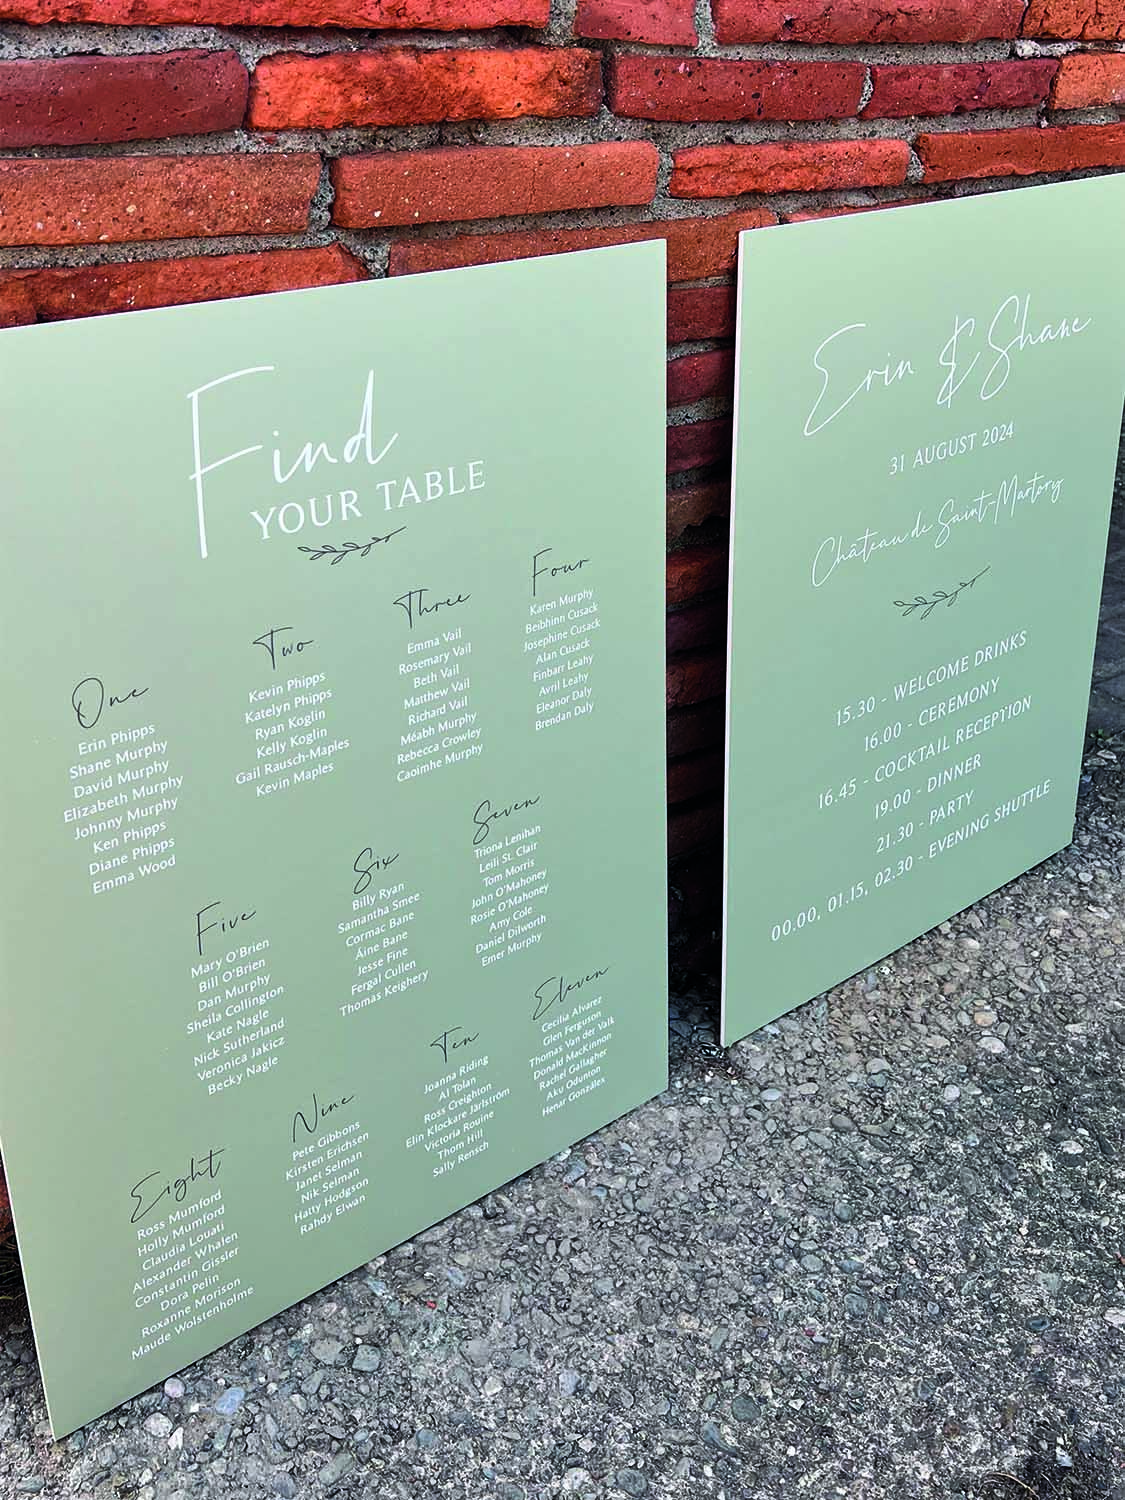 Find
YOUR TABLE
One
Erin Phipps
Shane Murphy
David Murphy
Elizabeth Murphy
Johnny Murphy
Ken Phipps
Diane Phipps
Emma Wood
Two
Kevin Phipps
Katelyn Phipps
Ryan Koglin
Kelly Koglin
Gail Rausch-Maples
Kevin Maples
Three
Emma Vail
Rosemary Vail
Beth Vail
Matthew Vail
Richard Vail
Méabh Murphy
Rebecca Crowley
Caoimhe Murphy
Four
Karen Murphy
Beibhinn Cusack
Josephine Cusack
Alan Cusack
Finbarr Leahy
Avril Leahy
Eleanor Daly
Brendan Daly
Five
Mary O'Brien
Bill O'Brien
Dan Murphy
Sheila Collington
Kate Nagle
Nick Sutherland
Veronica Jakicz
Becky Nagle
Six
Billy Ryan
Samantha Smee
Cormac Bane
Áine Bane
Jesse Fine
Fergal Cullen
Thomas Keighery
Seven
Triona Lenihan
Leili St. Clair
Tom Morris
John O'Mahoney
Rosie O'Mahoney
Amy Cole
Daniel Dilworth
Emer Murphy
Eight
Ross Mumford
Holly Mumford
Claudia Louati
Alexander Whalen
Constantin Gissler
Dora Pelin
Roxanne Morison
Maude Wolstenholme
Nine
Pete Gibbons
Kirsten Erichsen
Janet Selman
Nik Selman
Hatty Hodgson
Rahdy Elwan
Ten
Joanna Riding
Al Tolan
Ross Creighton
Elin Klockare Järlström
Victoria Rouine
Thom Hill
Sally Rensch
Eleven
Cecilia Alvarez
Glen Ferguson
Thomas Van der Valk
Donald MacKinnon
Rachel Gallagher
Aku Odunton
Henar González
Erin & Shane
31 AUGUST 2024
Château de Saint-Martory
15.30 - WELCOME DRINKS
16.00 - CEREMONY
16.45 - COCKTAIL RECEPTION
19.00 - DINNER
21.30 - PARTY
00.00, 01.15, 02.30 - EVENING SHUTTLE